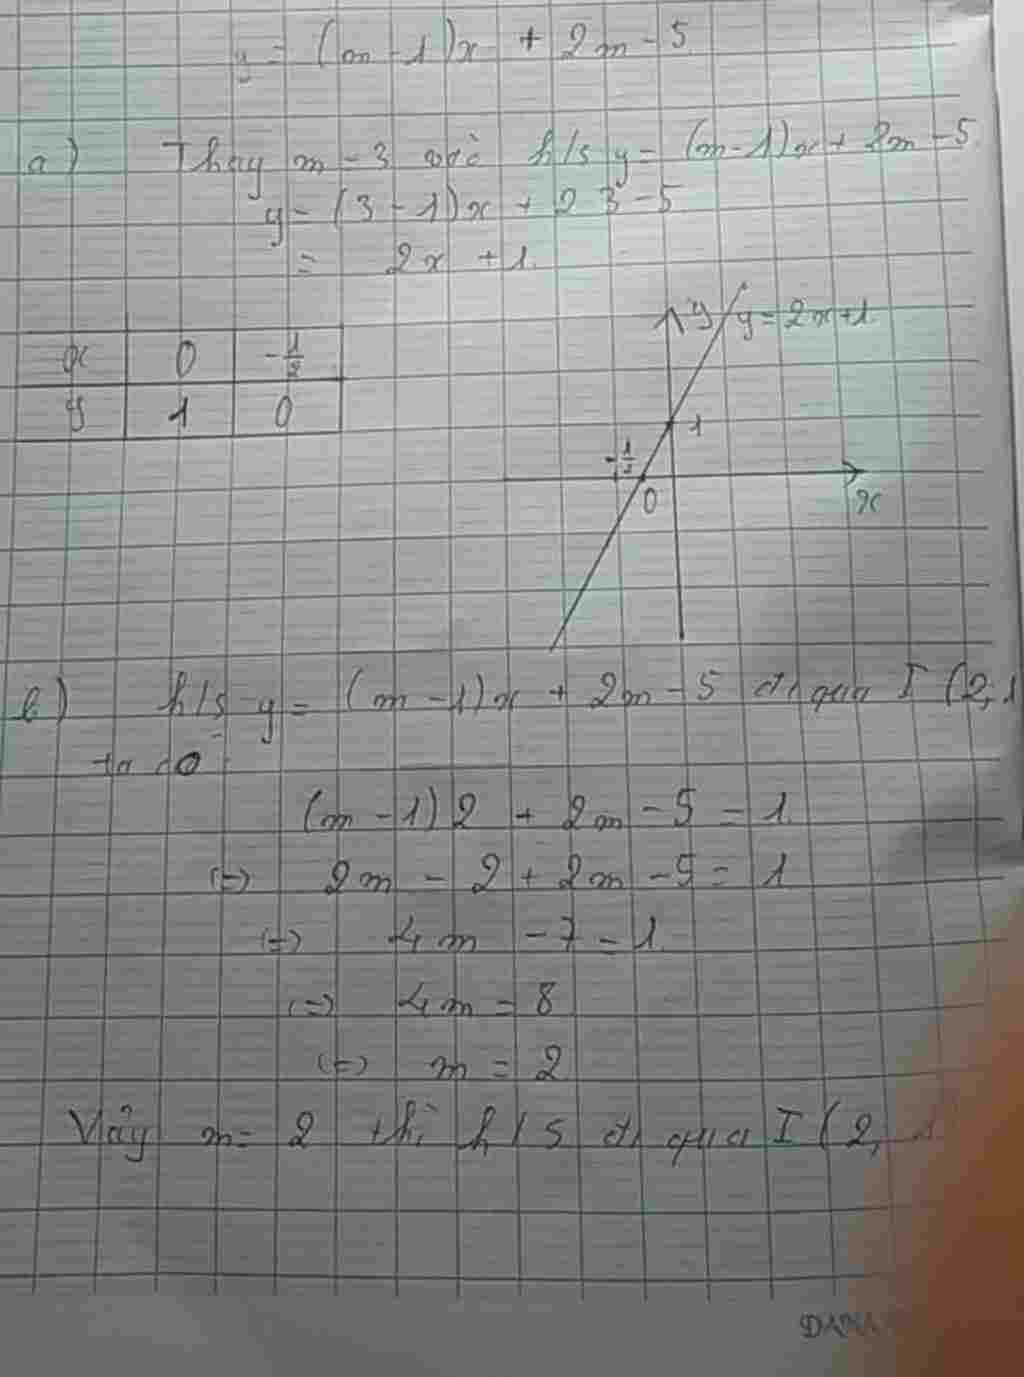 y = (m - 1)x + 2m - 5
a) Thay m = 3 vào h/s y = (m - 1)x + 2m - 5
y = (3 - 1)x + 2 3 - 5
= 2x + 1
y y = 2x + 1
x 0 -1/2
y 1 0
1
-1/2
0
x
b) h/s y = (m - 1)x + 2m - 5 đi qua I (2, 1
ta có
(m - 1) 2 + 2m - 5 = 1
(=) 2m - 2 + 2m - 5 = 1
(=) 4m - 7 = 1
(=) 4m = 8
(=) m = 2
Vậy m = 2 thì h/s đi qua I (2, 1